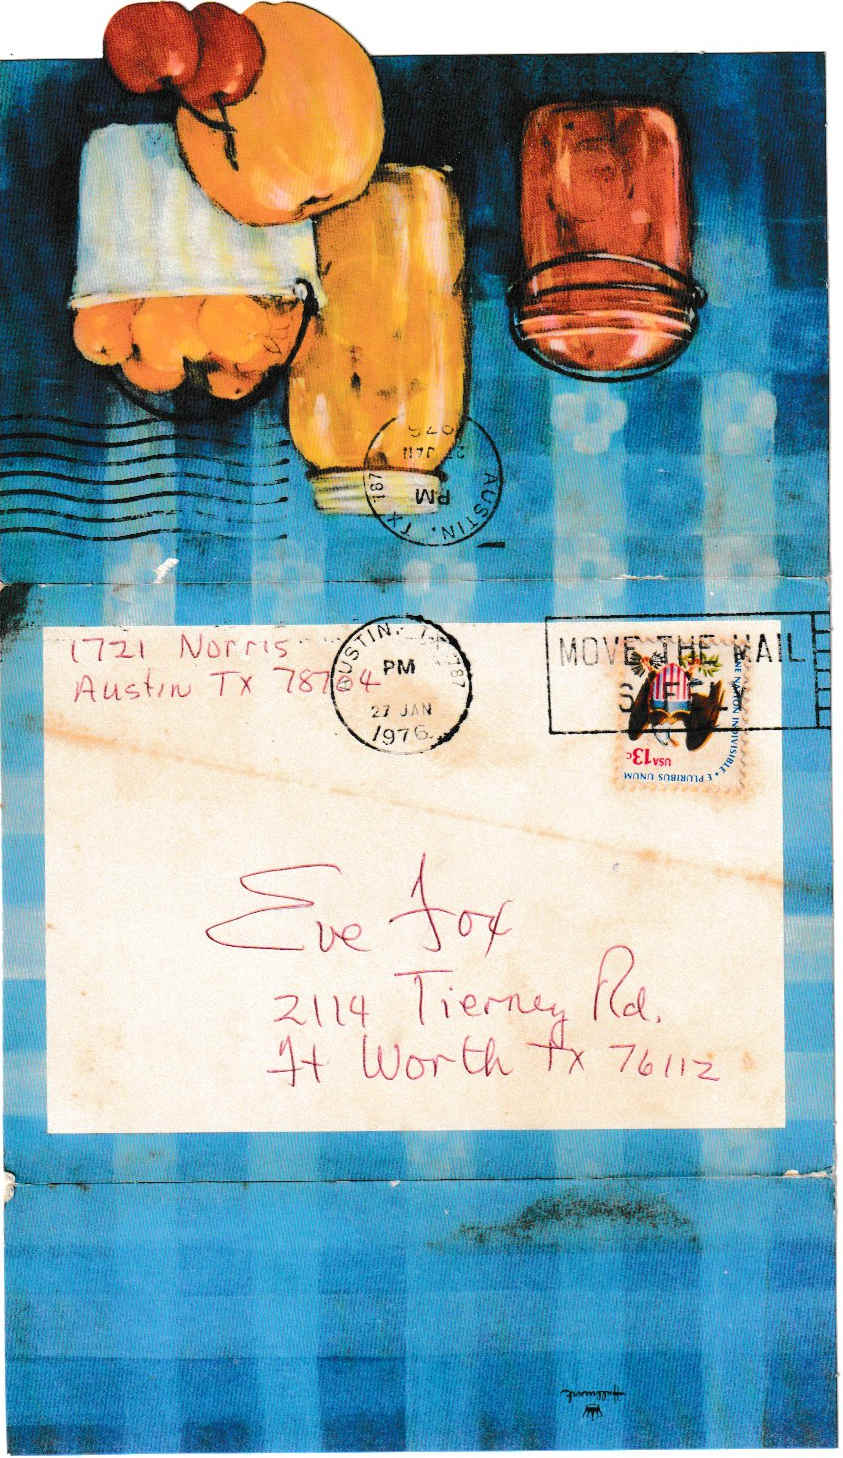 AUSTIN, TX 787
PM
27 JAN
1976
1721 Norris
Austin TX 78704
AUSTIN, TX 787
PM
27 JAN
1976
MOVE THE MAIL
SAFELY
ONE NATION INDIVISIBLE • E PLURIBUS UNUM
USA 13c
Eve Fox
2114 Tierney Rd.
Ft Worth Tx 76112
Hallmark